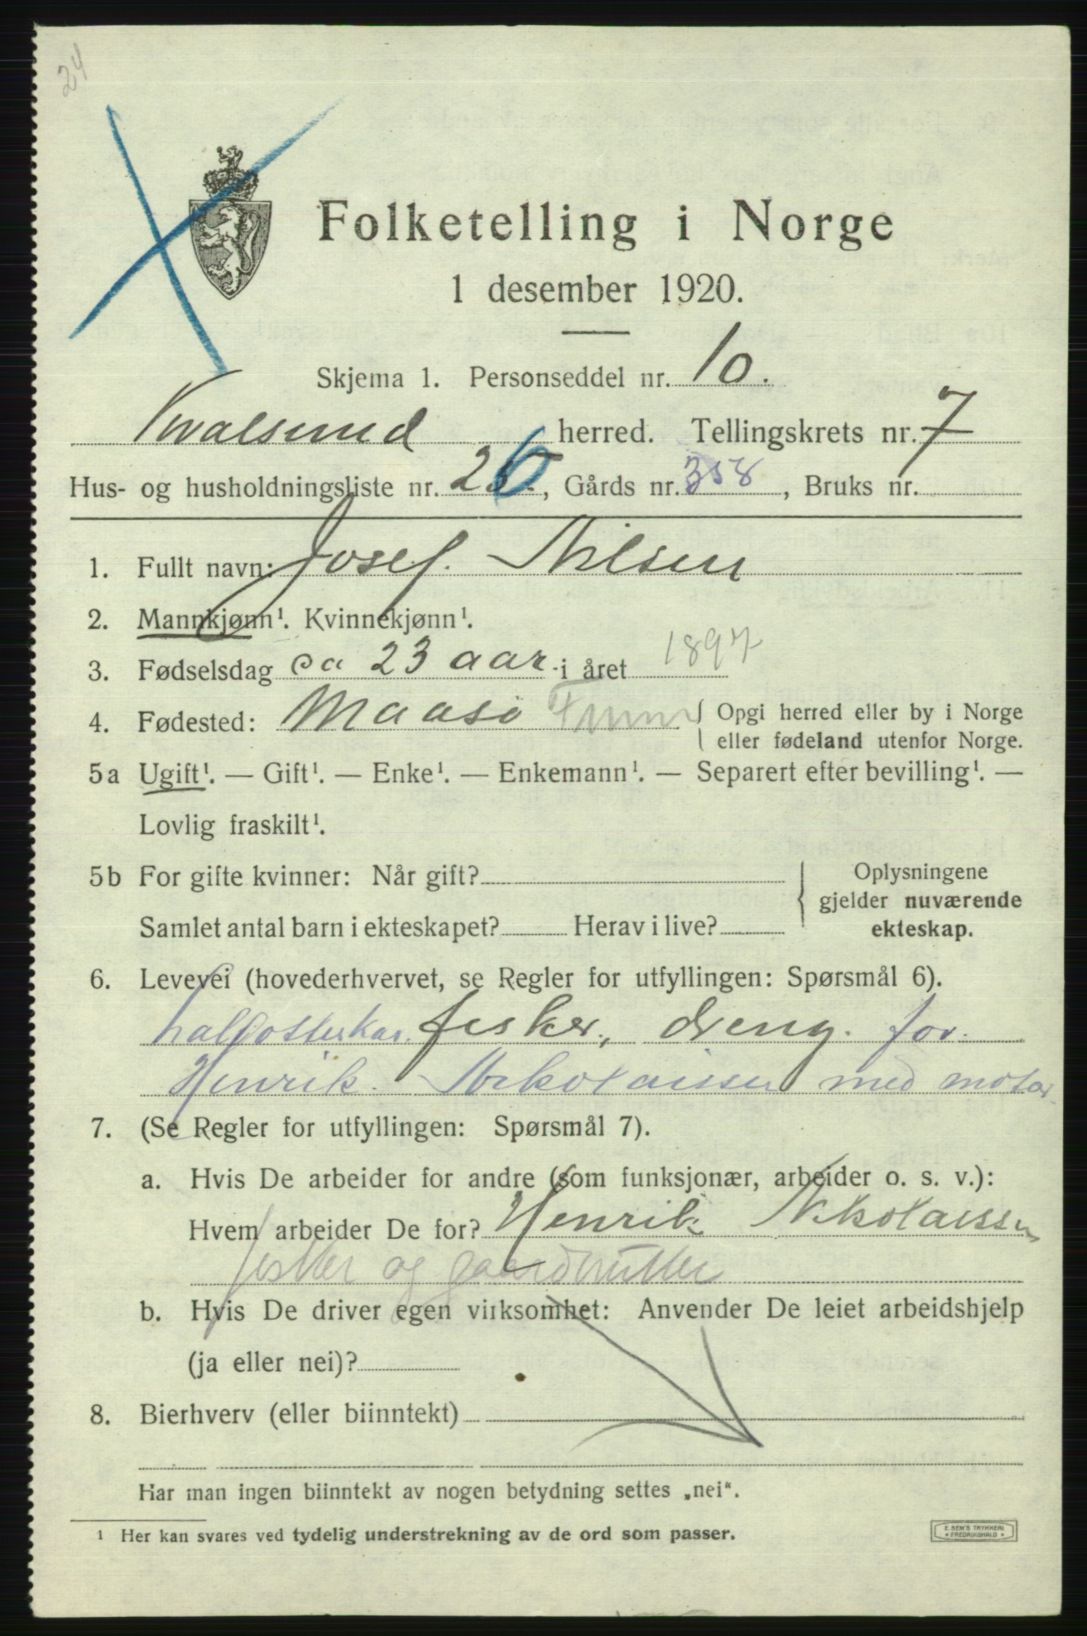 24
Folketelling i Norge
1 desember 1920.
Skjema 1. Personseddel nr. 10.
Kvalsund herred. Tellingskrets nr. 7
Hus- og husholdningsliste nr. 26, Gårds nr. 358, Bruks nr.
1. Fullt navn: Josef. Nilsen
2. Mannkjønn¹. Kvinnekjønn¹.
3. Fødselsdag ca 23 aar i året 1897
4. Fødested: Maasø Finnm { Opgi herred eller by i Norge
eller fødeland utenfor Norge.
5a Ugift¹. — Gift¹. — Enke¹. — Enkemann¹. — Separert efter bevilling¹. —
Lovlig fraskilt¹.
5b For gifte kvinner: Når gift? } Oplysningene
gjelder nuværende
Samlet antal barn i ekteskapet? Herav i live? ekteskap.
6. Levevei (hovederhvervet, se Regler for utfyllingen: Spørsmål 6).
fisker, dreng. for.
Henrik. Nikolaissen med motor
7. (Se Regler for utfyllingen: Spørsmål 7).
a. Hvis De arbeider for andre (som funksjonær, arbeider o. s. v.):
Hvem arbeider De for? Henrik Nikolaissen
fisker og gaardbruker
b. Hvis De driver egen virksomhet: Anvender De leiet arbeidshjelp
(ja eller nei)?
8. Bierhverv (eller biinntekt)
Har man ingen biinntekt av nogen betydning settes „nei“.
¹ Her kan svares ved tydelig understrekning av de ord som passer.
E. SEM'S TRYKKERI
• FREDRIKSHALD •